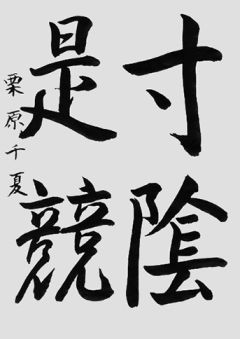 寸陰
是競
栗原千夏